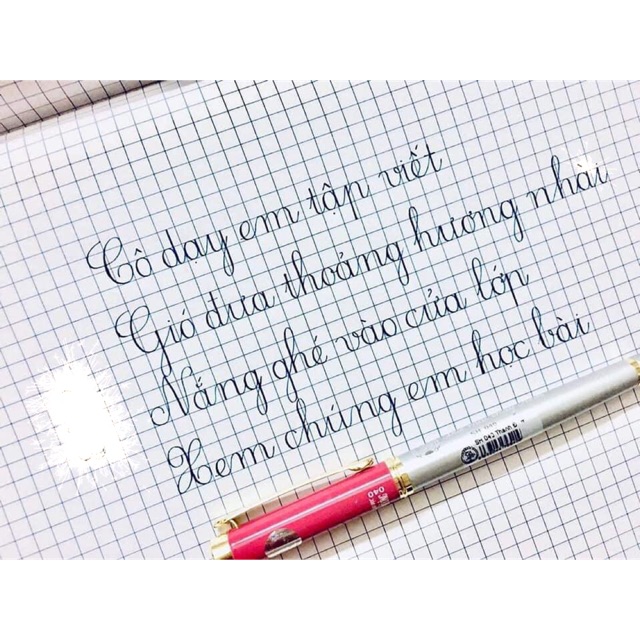 Cô dạy em tập viết
Gió đưa thoảng hương nhài
Nắng ghé vào cửa lớp
Xem chúng em học bài
SH 040 Thanh Đ
040